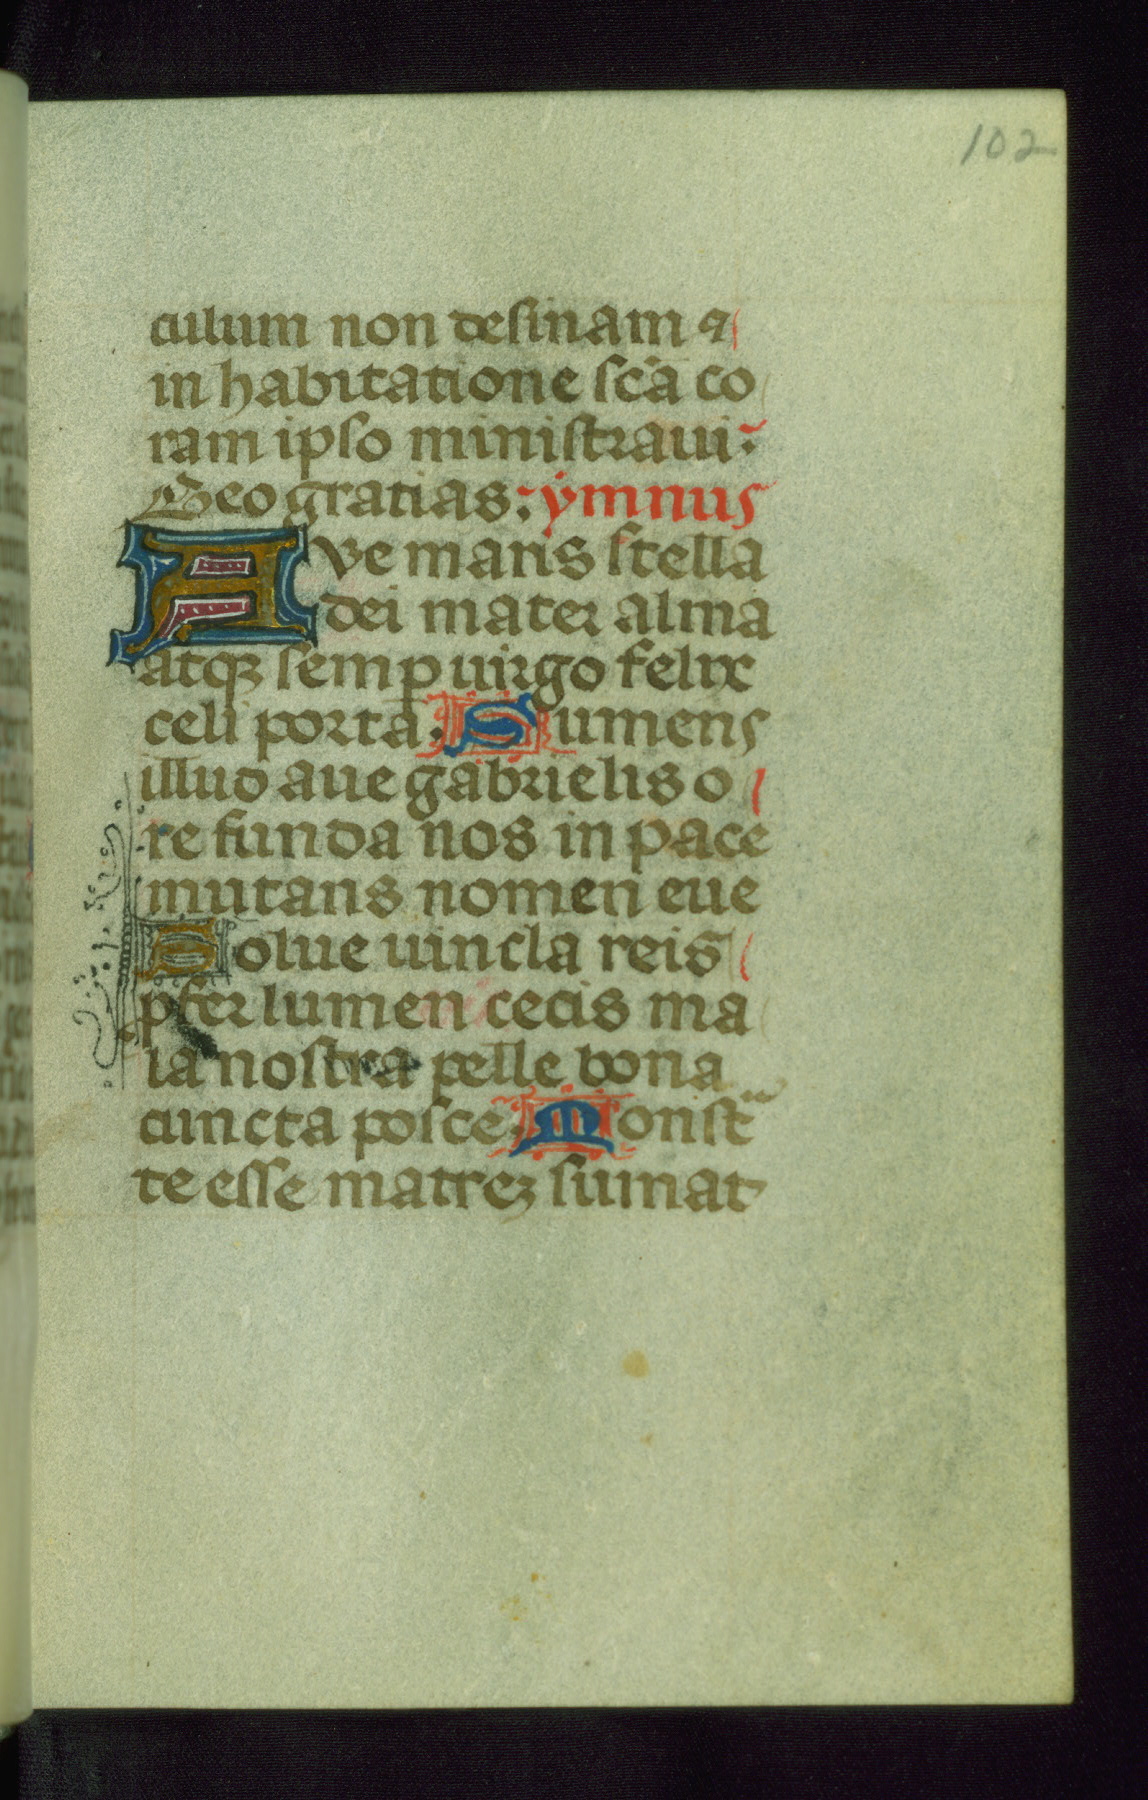 102
culum non desinam ⁊
in habitatione sc̃a co
ram ipso ministraui:
Deo gratias: ymnus
Ave maris stella
dei mater alma
atqꝫ semp uirgo felix
celi porta. Sumens
illud aue gabrielis o
re funda nos in pace
mutans nomen eue
Solue uincla reis
pfer lumen cecis ma
la nostra pelle bona
cuncta posce. Monstᵃ
te esse matreꝫ sumat